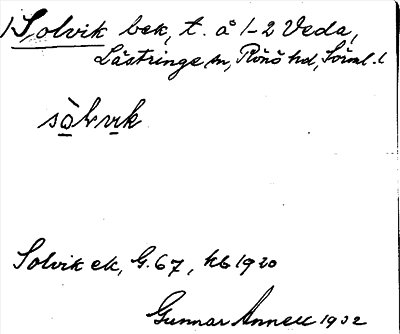 1) Solvik bek, t. å 1-2 Veda,
Lästringe sn, Rönö hd, Sörml. l
Solvik ek, G. 67, kb 1920
Gunnar Annell 1932